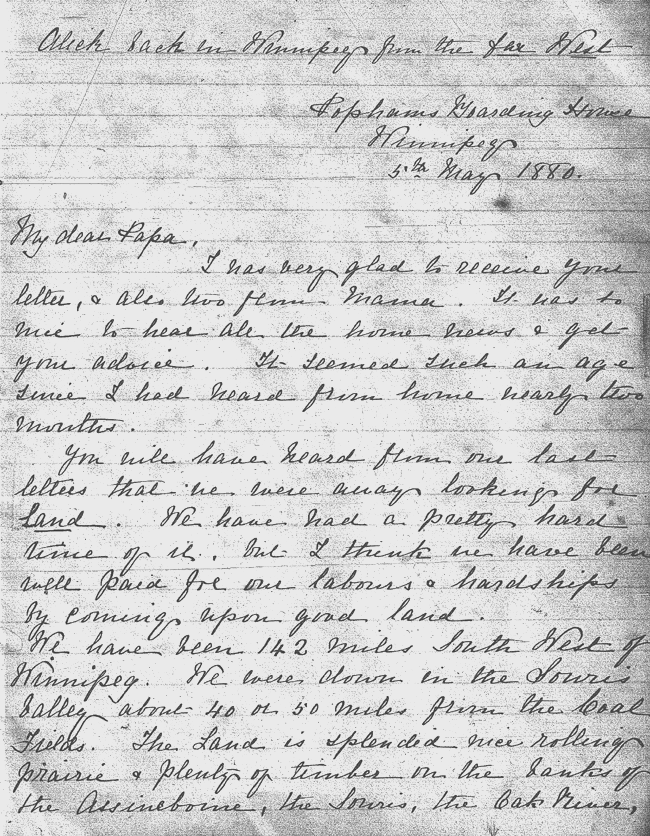 Alick back in Winnipeg from the far West
Pophams Boarding House
Winnipeg
5th May 1880.
My dear Papa,
I was very glad to receive your
letter, & also two from Mama. It was so
nice to hear all the home news & get
your advice. It seemed such an age
since I had heard from home nearly two
months.
You will have heard from our last
letters that we were away looking for
Land. We have had a pretty hard
time of it, but I think we have been
well paid for our labours & hardships
by coming upon good land.
We have been 142 miles South West of
Winnipeg. We were down in the Souris
Valley about 40 or 50 miles from the Coal
Fields. The Land is splended nice rolling
prairie & plenty of timber on the banks of
the Assineboine, the Souris, the Oak River,